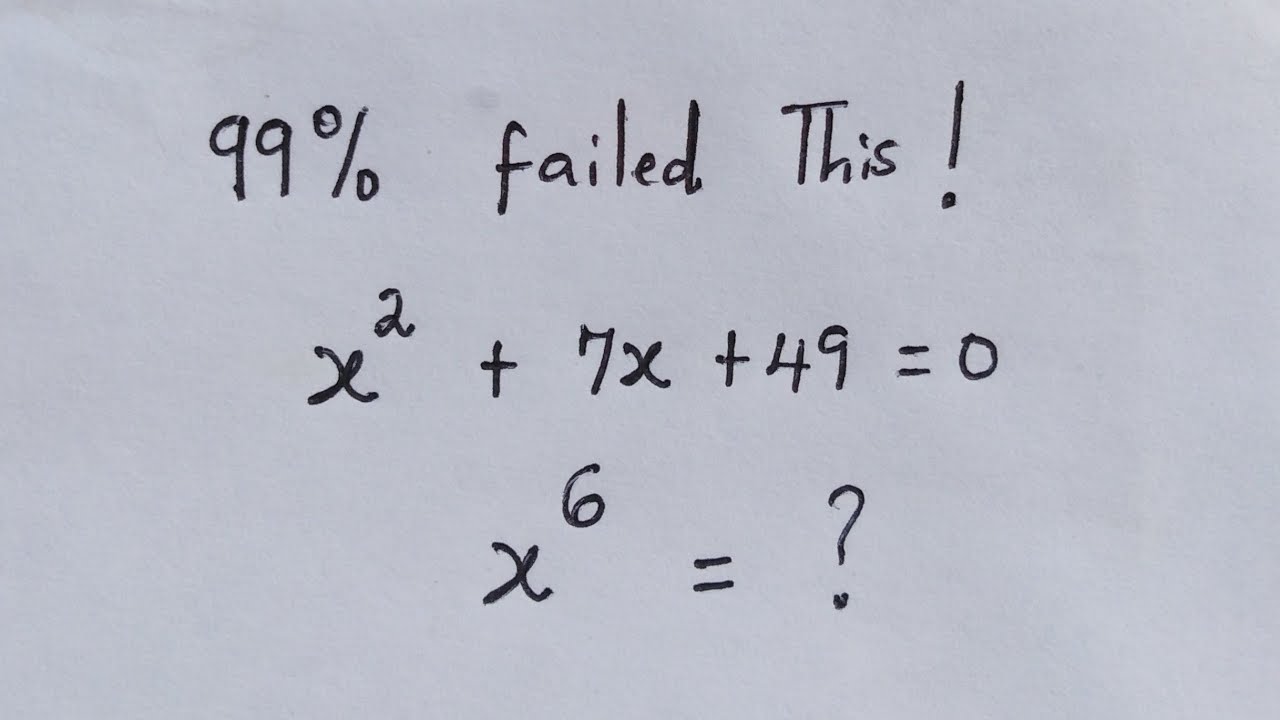 99% failed This!
x² + 7x + 49 = 0
x⁶ = ?